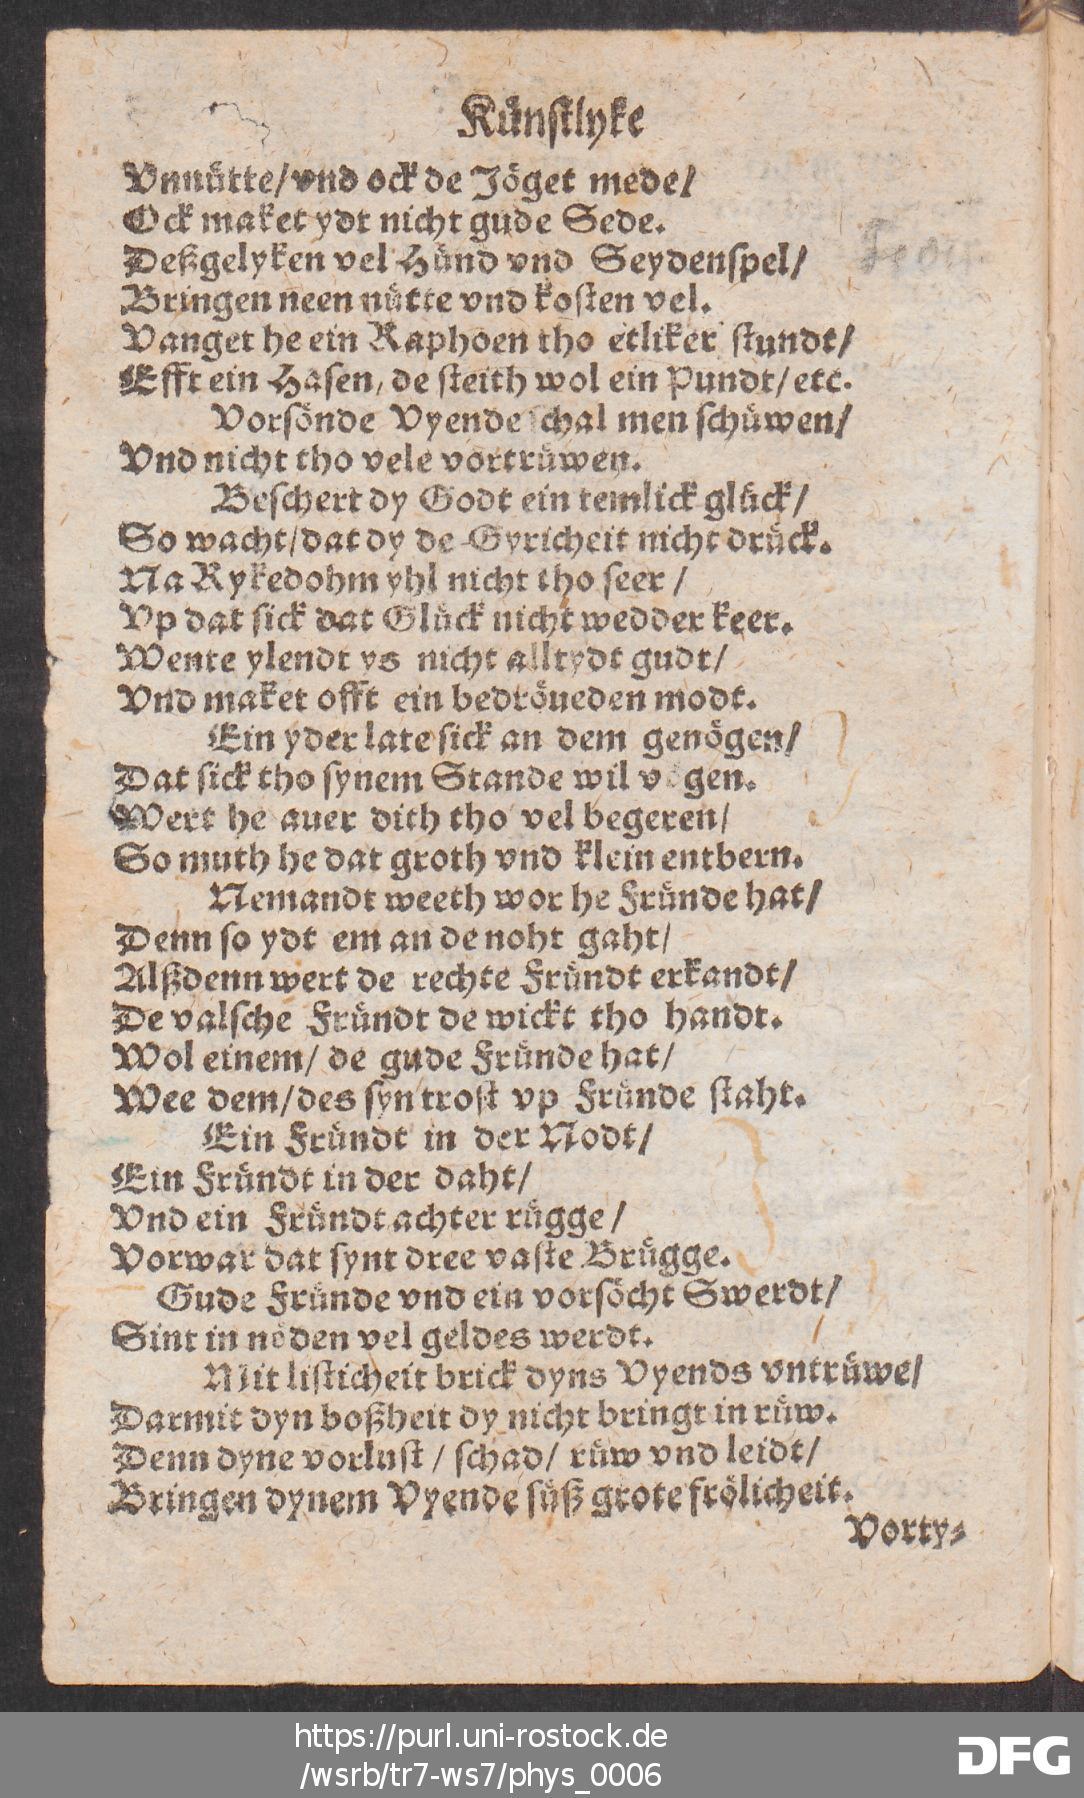 Kuͤnſtlyke
Vnnuͤtte/ vnd ock de Joͤget mede/
Ock maket ydt nicht gude Sede.
Deßgelyken vel Huͤnd vnd Seydenſpel/
Bringen neen nuͤtte vnd koſten vel.
Vanget he ein Raphoen tho etliker ſtundt/
Efft ein Haſen, de ſteith wol ein Pundt/ etc.
Vorſoͤnde Vyende ſchal men ſchuͤwen/
Vnd nicht tho vele vortruͤwen.
Beſchert dy Godt ein temlick gluͤck/
So wacht/ dat dy de Gyricheit nicht druͤck.
Na Rykedohm yhl nicht tho ſeer /
Vp dat ſick dat Gluͤck nicht wedder keer.
Wente ylendt ys nicht alltydt gudt/
Vnd maket offt ein bedroͤueden modt.
Ein yder late ſick an dem genoͤgen/
Dat ſick tho ſynem Stande wil voͤgen.
Wert he auer dith tho vel begeren/
So muth he dat groth vnd klein entbern.
Nemandt weeth wor he Fruͤnde hat/
Denn ſo ydt em an de noht gaht/
Alßdenn wert de rechte Fruͤndt erkandt/
De valſche Fruͤndt de wickt tho handt.
Wol einem/ de gude Fruͤnde hat/
Wee dem/ des ſyn troſt vp Fruͤnde ſtaht.
Ein Fruͤndt in der Nodt/
Ein Fruͤndt in der daht/
Vnd ein Fruͤndt achter ruͤgge/
Vorwar dat ſynt dree vaſte Bruͤgge.
Gude Fruͤnde vnd ein vorſoͤcht Swerdt/
Sint in noͤden vel geldes werdt.
Mit liſticheit brick dyns Vyends vntruͤwe/
Darmit dyn boßheit dy nicht bringt in ruͤw.
Denn dyne vorluſt / ſchad/ ruͤw vnd leidt/
Bringen dynem Vyende ſuͤß grote froͤlicheit.
Vorty⸗
https://purl.uni-rostock.de
/wsrb/tr7-ws7/phys_0006
DFG